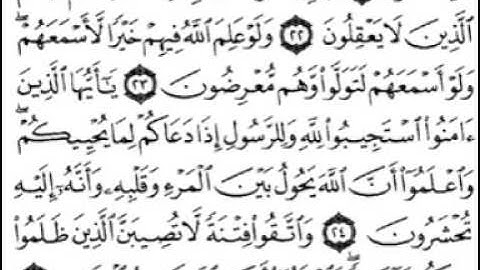 ٱلَّذِينَ لَا يَعْقِلُونَ ٢٢ وَلَوْ عَلِمَ ٱللَّهُ فِيهِمْ خَيْرًا لَّأَسْمَعَهُمْ ۖ
وَلَوْ أَسْمَعَهُمْ لَتَوَلَّوا۟ وَّهُم مُّعْرِضُونَ ٢٣ يَـٰٓأَيُّهَا ٱلَّذِينَ
ءَامَنُوا۟ ٱسْتَجِيبُوا۟ لِلَّهِ وَلِلرَّسُولِ إِذَا دَعَاكُمْ لِمَا يُحْيِيكُمْ ۖ
وَٱعْلَمُوٓا۟ أَنَّ ٱللَّهَ يَحُولُ بَيْنَ ٱلْمَرْءِ وَقَلْبِهِۦ وَأَنَّهُۥٓ إِلَيْهِ
تُحْشَرُونَ ٢٤ وَٱتَّقُوا۟ فِتْنَةً لَّا تُصِيبَنَّ ٱلَّذِينَ ظَلَمُوا۟